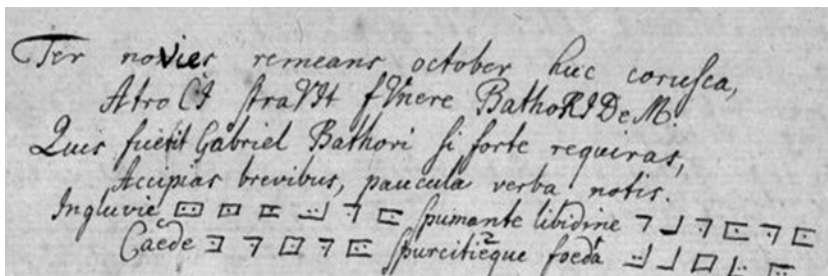 Ter novies remeans october huc corusca,
AtroCI straVIt fVnere BathoRIDeM
Quis fuerit Gabriel Bathori si forte requiras,
Accipias brevibus, paucula verba notis.
Ingluvie spumante libidine
Caede spurcitieque foeda